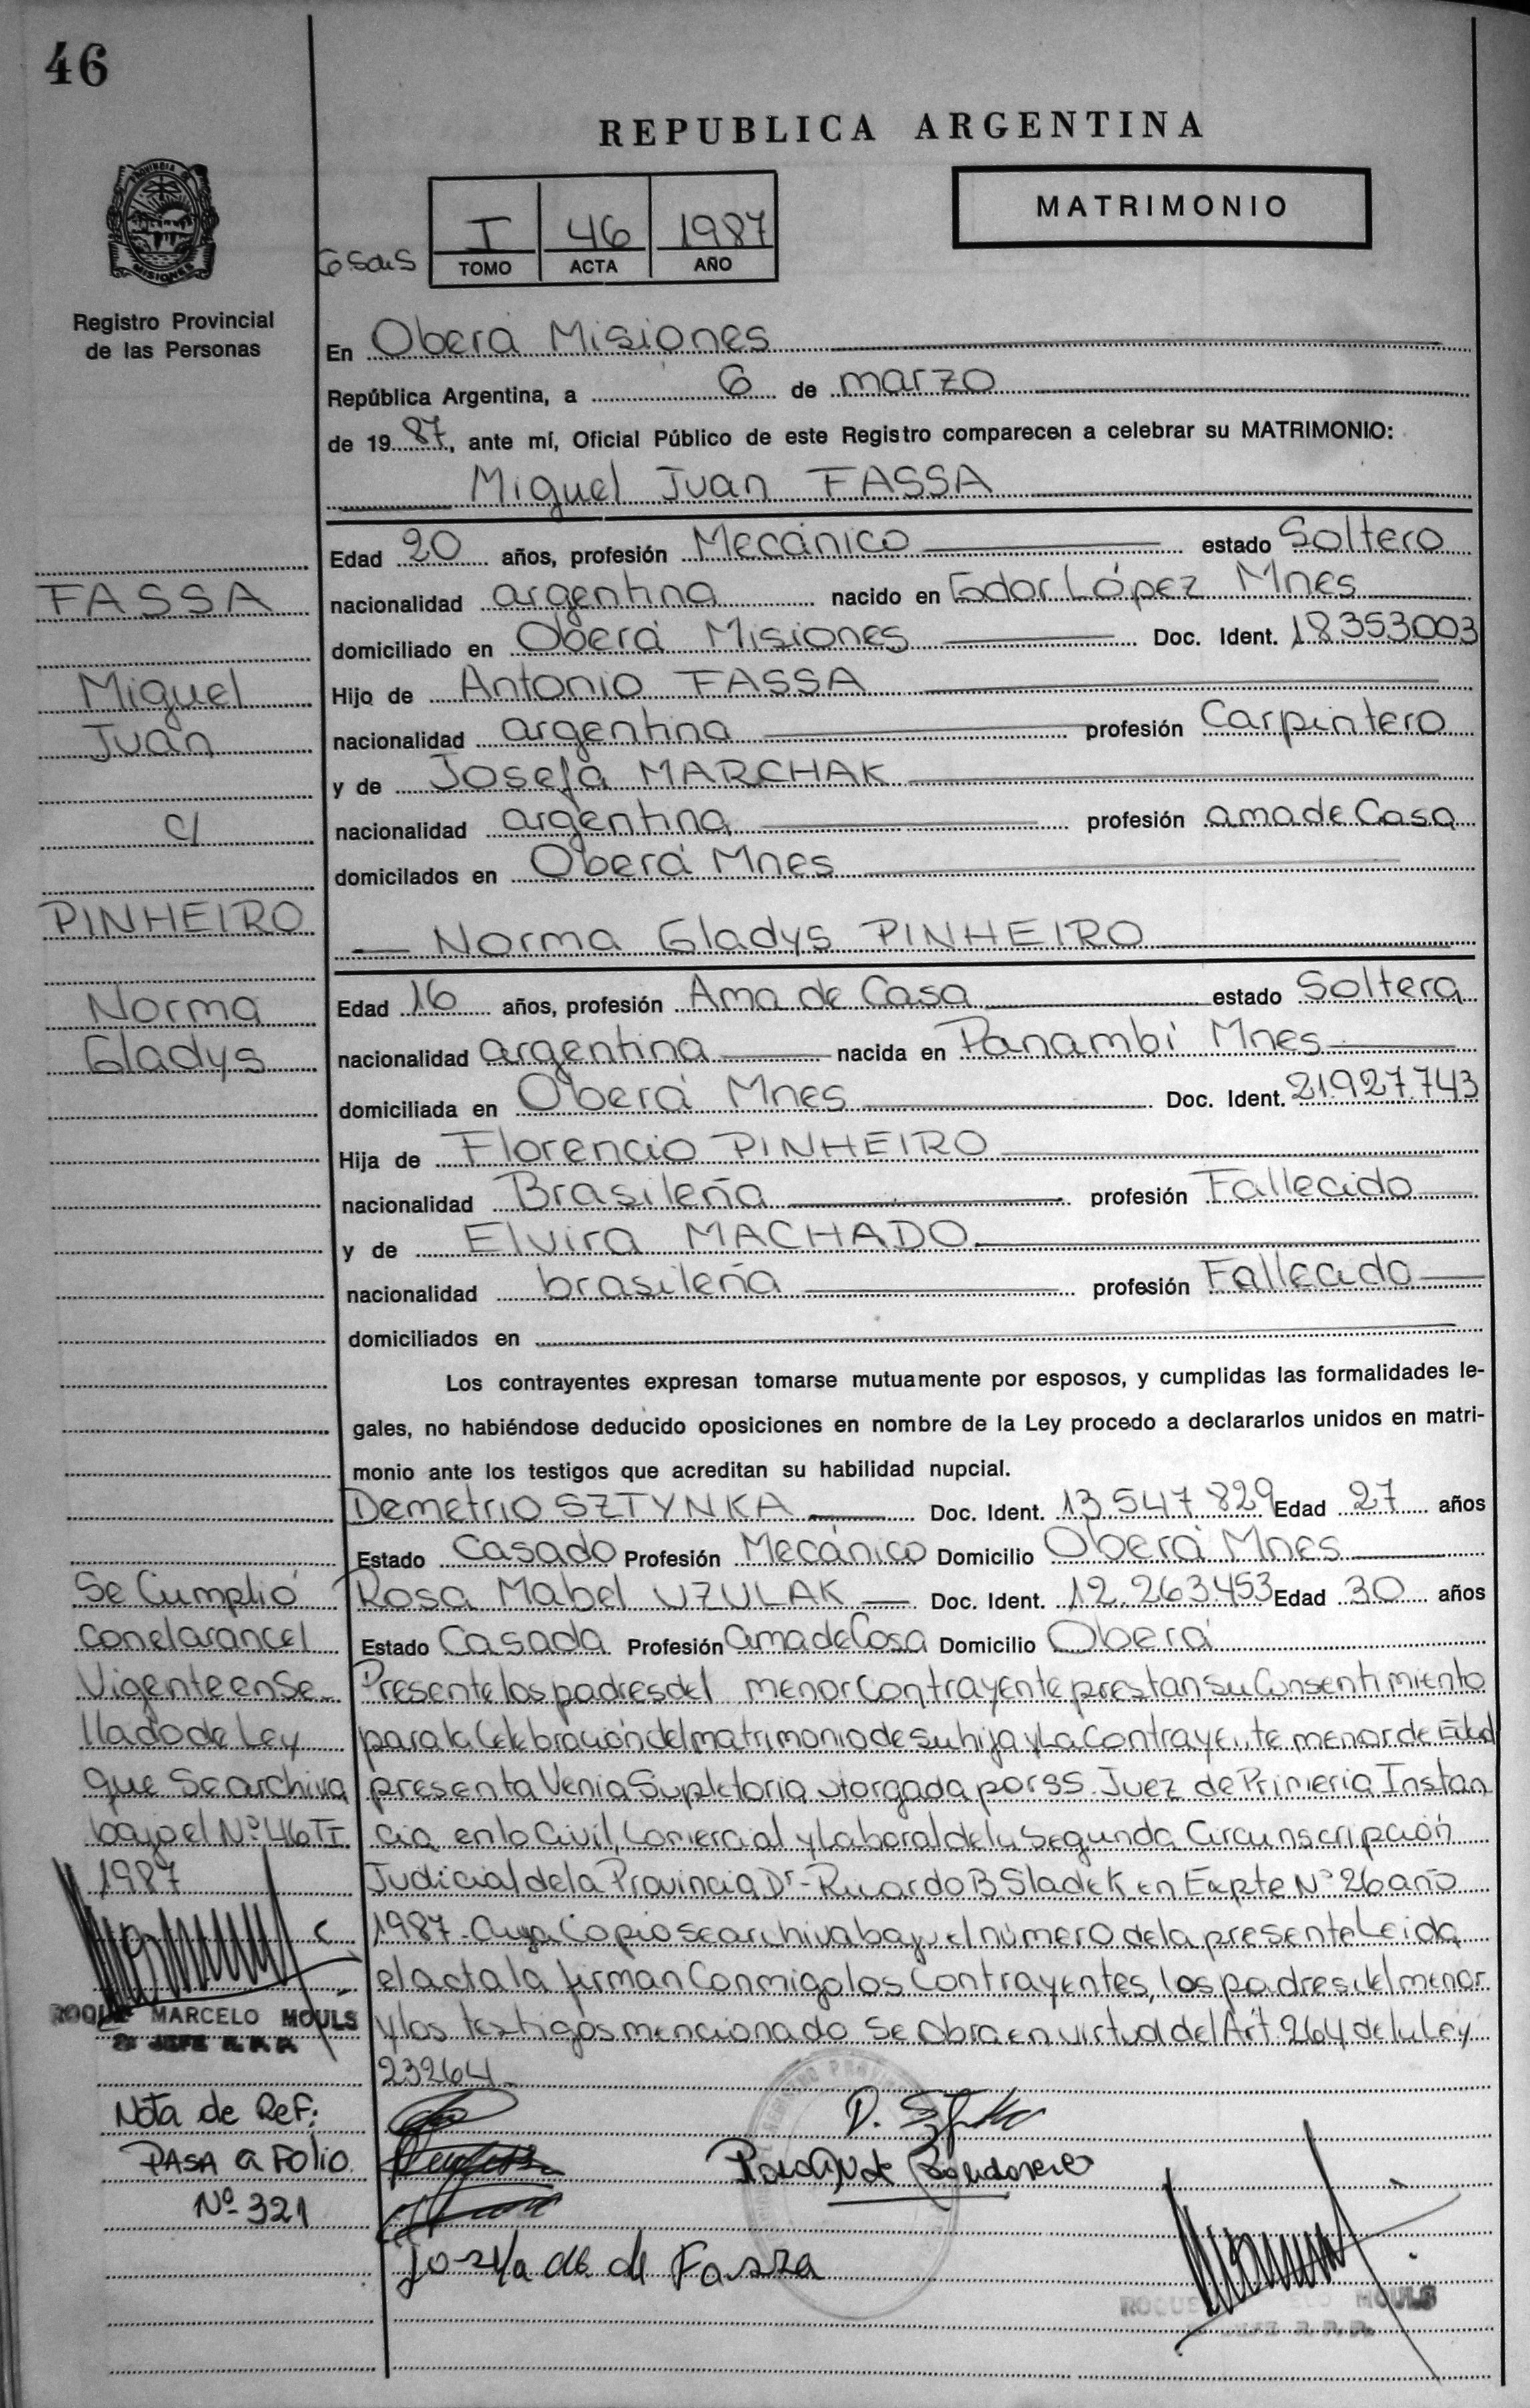 46
REPUBLICA ARGENTINA
MATRIMONIO
PROVINCIA DE
MISIONES
I 46 1987
TOMO ACTA AÑO
Registro Provincial
de las Personas
En Oberá Misiones
República Argentina, a 6 de marzo
de 1987, ante mí, Oficial Público de este Registro comparecen a celebrar su MATRIMONIO:
Miguel Juan FASSA
Edad 20 años, profesión Mecánico estado Soltero
nacionalidad argentina nacido en Gdor López Mnes
domiciliado en Oberá Misiones Doc. Ident. 18353003
Hijo de Antonio FASSA
nacionalidad argentina profesión Carpintero
y de Josefa MARCHAK
nacionalidad argentina profesión ama de Casa
domicilados en Oberá Mnes
Norma Gladys PINHEIRO
Edad 16 años, profesión Ama de Casa estado Soltera
nacionalidad argentina nacida en Panambí Mnes
domiciliada en Oberá Mnes Doc. Ident. 21.927.743
Hija de Florencio PINHEIRO
nacionalidad Brasileña profesión Fallecido
y de Elvira MACHADO
nacionalidad brasileña profesión Fallecida
domiciliados en
Los contrayentes expresan tomarse mutuamente por esposos, y cumplidas las formalidades le-
gales, no habiéndose deducido oposiciones en nombre de la Ley procedo a declararlos unidos en matri-
monio ante los testigos que acreditan su habilidad nupcial.
Demetrio SZTYNKA Doc. Ident. 13.547.829 Edad 27 años
Estado Casado Profesión Mecánico Domicilio Oberá Mnes
Rosa Mabel UZULAK Doc. Ident. 12.263.453 Edad 30 años
Estado Casada Profesión ama de Casa Domicilio Oberá
Presente los padres del menor Contrayente prestan su Consentimiento
para la Celebración del matrimonio de su hija y La Contrayente menor de Edad
presenta Venia Supletoria otorgada por SS. Juez de Primeria Instan
cia en lo Civil, Comercial y Laboral de la Segunda Circunscripción
Judicial de la Provincia Dr- Ricardo B Sladek en Expte Nº 26 año
1987- Cuya Copia se archiva bajo el número de la presente Leida
el acta la firman Conmigo los Contrayentes, los padres del menor
y los testigos mencionado Se Obra en virtud del Art. 264 de la Ley
23264
D.
Josefa M. de Fassa
FASSA
Miguel
Juan
c/
PINHEIRO
Norma
Gladys
Se Cumplió
con el arancel
Vigente en Se
llado de Ley
que Se archiva
bajo el Nº 46 TI
1987
ROQUE MARCELO MOULS
JEFE R. P. P.
Nota de Ref:
PASA a Folio
Nº 321
ROQUE MOULS